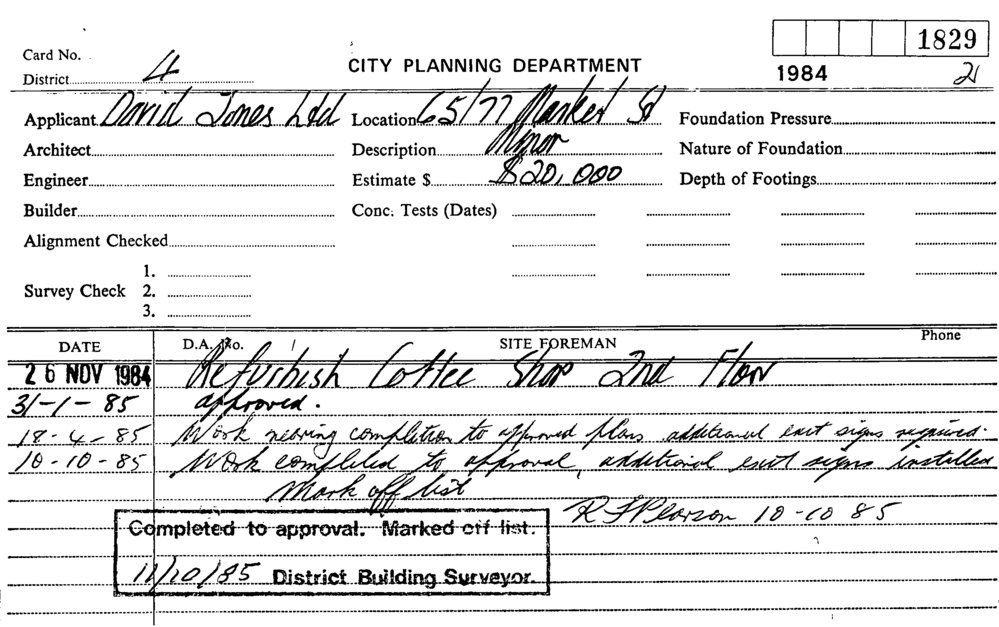 1829
Card No.
CITY PLANNING DEPARTMENT
1984 2
District 4
Applicant David Jones Ltd Location 65/77 Market St Foundation Pressure
Architect Description Minor Nature of Foundation
Engineer Estimate $ $20,000 Depth of Footings
Builder Conc. Tests (Dates)
Alignment Checked
1.
Survey Check 2.
3.
DATE D.A. No. SITE FOREMAN Phone
26 NOV 1984 Refurbish Coffee Shop 2nd Floor
31-1-85 approved.
18-4-85 Work nearing completion to approved plans additional exit signs required.
10-10-85 Work completed to approval, additional exit signs installed
Mark off list
R F Pearson 10-10 85
Completed to approval. Marked off list.
11/10/85 District Building Surveyor.